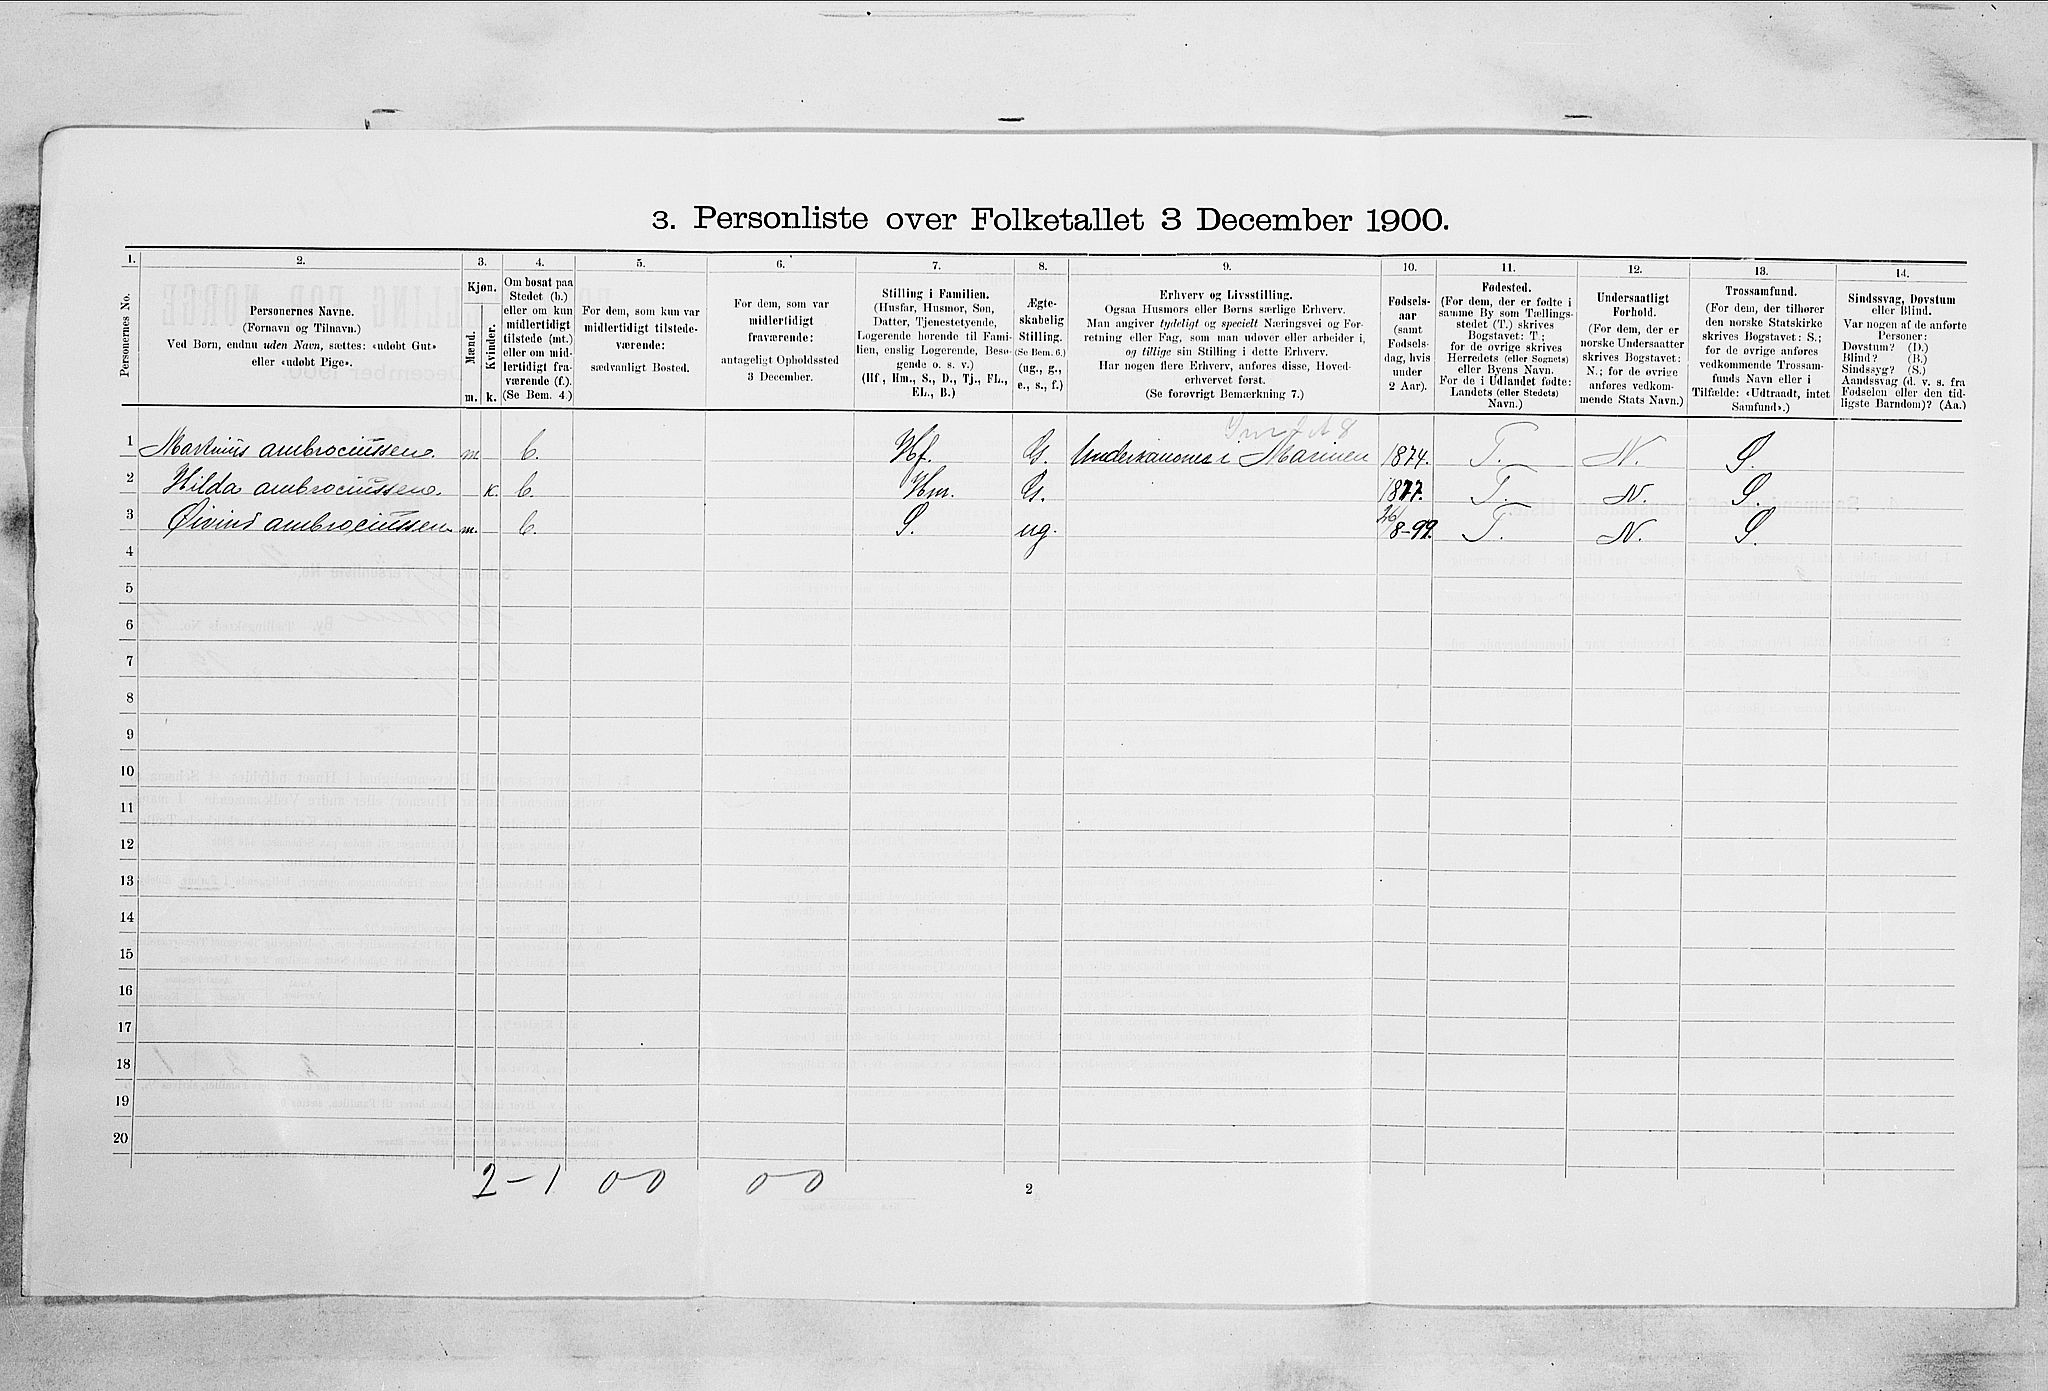 3. Personliste over Folketallet 3 December 1900.
1. 2. 3. 4. 5. 6. 7. 8. 9. 10. 11. 12. 13. 14.
Personernes No.
Personernes Navne.
(Fornavn og Tilnavn.)
Ved Børn, endnu uden Navn, sættes: «udøbt Gut»
eller «udøbt Pige».
Kjøn.
Mænd.
Kvinder.
m. k.
Om bosat paa
Stedet (b.)
eller om kun
midlertidigt
tilstede (mt.)
eller om mid-
lertidigt fra-
værende (f.).
(Se Bem. 4.)
For dem, som kun var
midlertidigt tilstede-
værende:
sædvanligt Bosted.
For dem, som var
midlertidigt
fraværende:
antageligt Opholdssted
3 December.
Stilling i Familien.
(Husfar, Husmor, Søn,
Datter, Tjenestetyende,
Logerende hørende til Fami-
lien, enslig Logerende, Besø-
gende o. s. v.)
(Hf , Hm., S., D., Tj., FL.,
EL., B.)
Ægte-
skabelig
Stilling.
(Se Bem. 6.)
(ug., g.,
e., s., f.)
Erhverv og Livsstilling.
Ogsaa Husmors eller Børns særlige Erhverv.
Man angiver tydeligt og specielt Næringsvei og For-
retning eller Fag, som man udøver eller arbeider i,
og tillige sin Stilling i dette Erhverv.
Har nogen flere Erhverv, anføres disse, Hoved-
erhvervet først.
(Se forøvrigt Bemærkning 7.)
Fødsels-
aar
(samt
Fødsels-
dag, hvis
under
2 Aar).
Fødested.
(For dem, der er fødte i
samme By som Tællings-
stedet (T.) skrives
Bogstavet: T ;
for de øvrige skrives
Herredets (eller Sognets)
eller Byens Navn.
For de i Udlandet fødte:
Landets (eller Stedets)
Navn.)
Undersaatligt
Forhold.
(For dem, der er
norske Undersaatter
skrives Bogstavet:
N.; for de øvrige
anføres vedkom-
mende Stats Navn.)
Trossamfund.
(For dem, der tilhører
den norske Statskirke
skrives Bogstavet: S.;
for de øvrige anføres
vedkommende Trossam-
funds Navn eller i
Tilfælde: «Udtraadt, intet
Samfund».)
Sindssvag, Døvstum
eller Blind.
Var nogen af de anførte
Personer:
Døvstum? (D.)
Blind? (B.)
Sindssyg? (S.)
Aandssvag (d. v. s. fra
Fødselen eller den tid-
ligste Barndom)? (Aa.)
1 Martinius ambrociussen. m b. Hf. G. Underkanoner i Marinen 1874. T. N. S.
2 Hilda ambrociussen. k. b. Hm. G. 1877. T. N. S.
3 Øivind ambrociussen m. b. S. ug. 26/8-99. T. N. S.
4
5
6
7
8
9
10
11
12
13
14
15
16
17
18
19
20
2-1 0-0 0-0
2